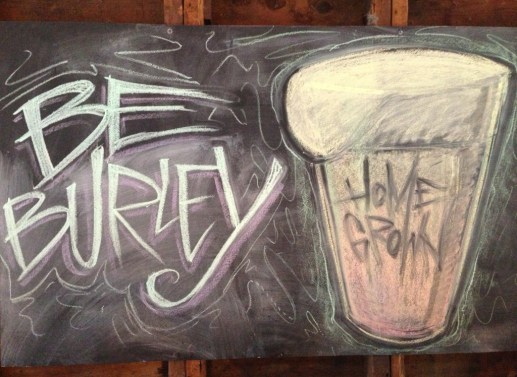 BE
BURLEY
HOME
GROWN